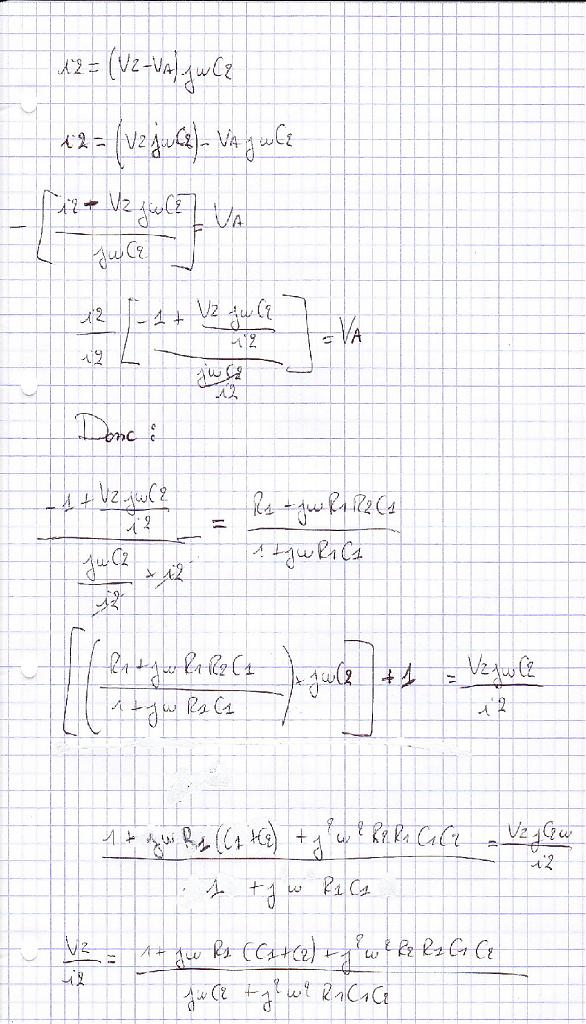 i2 = (V2-VA) jωC2
i2 = (V2jωC2) - VA jωC2
- [ (i2 - V2 jωC2) / (jωC2) ] = VA
i2/i2 [ (-1 + (V2 jωC2)/i2) / (jωC2/i2) ] = VA
Donc :
(-1 + (V2jωC2)/i2) / ((jωC2/i2) × i2) = (R1 + jωR1R2C1) / (1 + jωR1C1)
[ ( (R1 + jωR1R2C1) / (1 + jωR1C1) ) × jωC2 ] + 1 = (V2jωC2) / i2
(1 + jωR1(C1+C2) + j²ω²R2R1C1C2) / (1 + jωR1C1) = (V2jC2ω) / i2
V2/i2 = (1 + jωR1(C1+C2) + j²ω²R2R1C1C2) / (jωC2 + j²ω²R1C1C2)